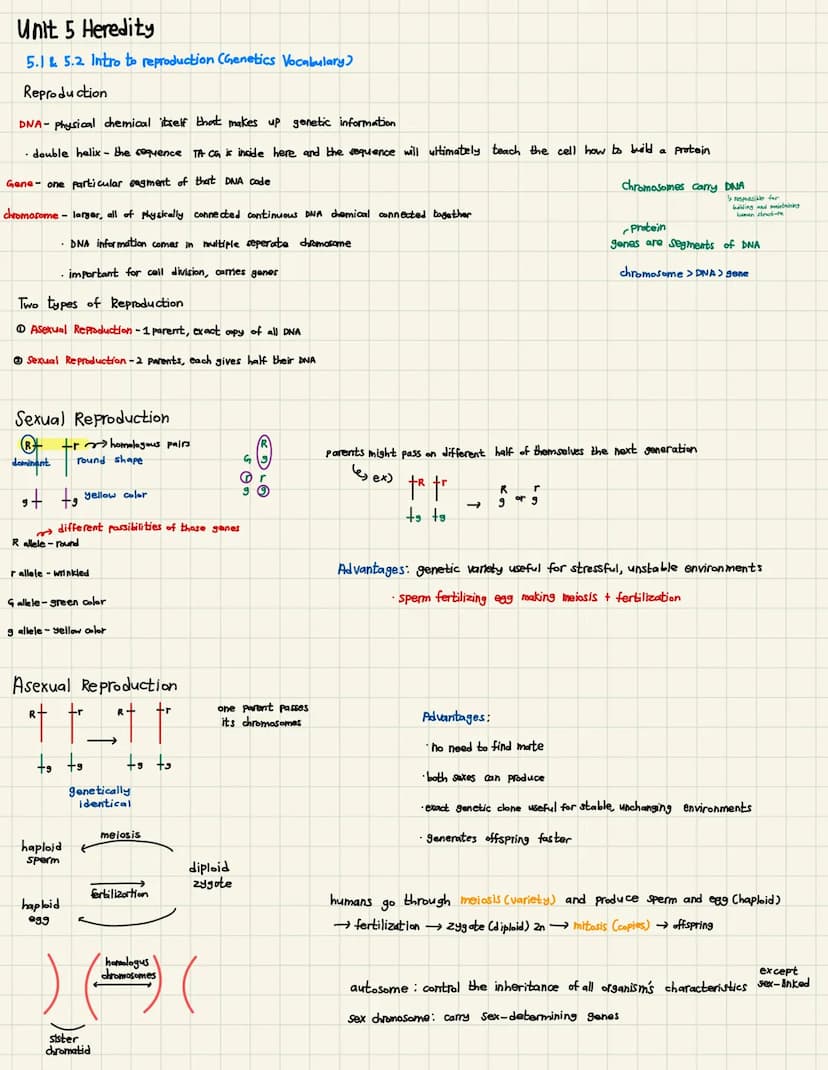 Unit 5 Heredity
5.1 & 5.2 Intro to reproduction (Genetics Vocabulary)
Reproduction
DNA - physical chemical itself that makes up genetic information
· double helix - the sequence TA CG is inside here and the sequence will ultimately teach the cell how to build a protein
Gene - one particular segment of that DNA code
chromosome - larger, all of physically connected continuous DNA chemical connected together
· DNA information comes in multiple seperate chromosome
· important for cell division, carries genes
Chromosomes carry DNA
↳ responsible for
building and maintaining
human structure
protein
genes are segments of DNA
chromosome > DNA > gene
Two types of Reproduction
① Asexual Reproduction - 1 parent, exact copy of all DNA
② Sexual Reproduction - 2 parents, each gives half their DNA
Sexual Reproduction
R r → homologous pairs
dominant round shape
g g yellow color
→ different possibilities of those genes
R allele - round
r allele - wrinkled
G allele - green color
g allele - yellow color
R
G g
r r
g g
Parents might pass on different half of themselves the next generation
↳ ex)
R r
g g
→
R r
g or g
Advantages: genetic variety useful for stressful, unstable environments
· sperm fertilizing egg making meiosis + fertilization
Asexual Reproduction
R r → R r
g g g g
genetically
identical
one parent passes
its chromosomes
Advantages:
· no need to find mate
· both sexes can produce
· exact genetic clone useful for stable, unchanging environments
· generates offspring faster
meiosis
haploid
sperm
diploid
zygote
fertilization
haploid
egg
humans go through meiosis (variety) and produce sperm and egg (haploid)
→ fertilization → zygote (diploid) 2n → mitosis (copies) → offspring
homologus
chromosomes
sister
chromatid
autosome : control the inheritance of all organism's characteristics except
sex-linked
sex chromosome: carry sex-determining genes